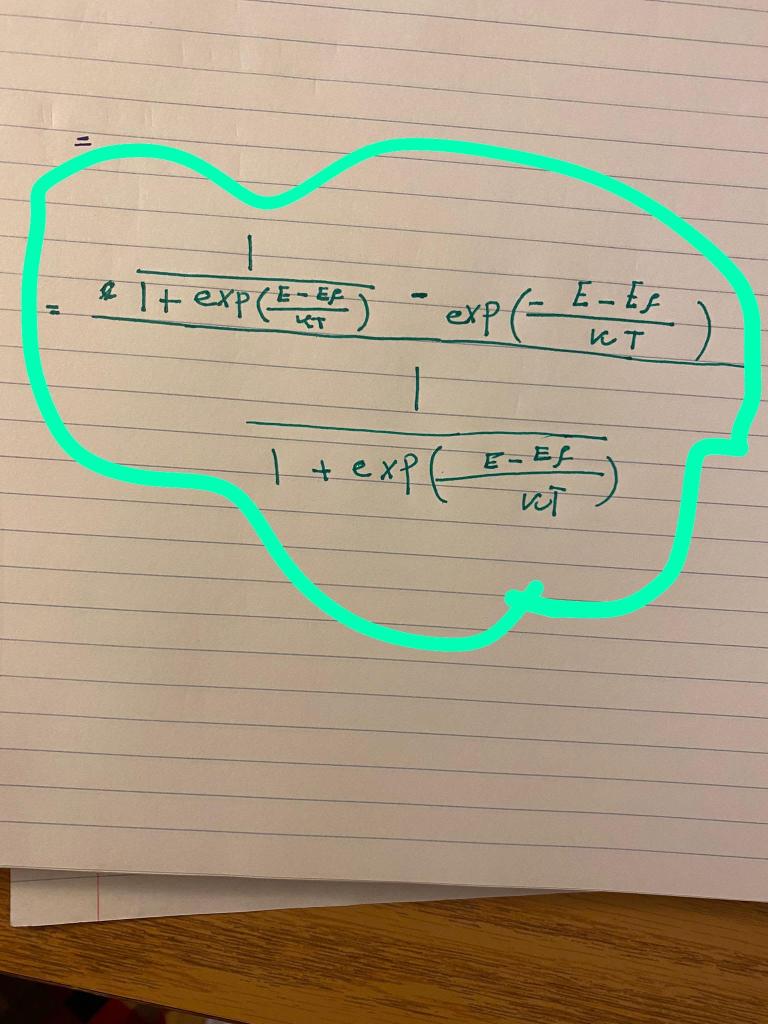 =
= 1 / (1 + exp((E - Ef) / KT)) - exp(- (E - Ef) / KT)
1 / (1 + exp((E - Ef) / KT))